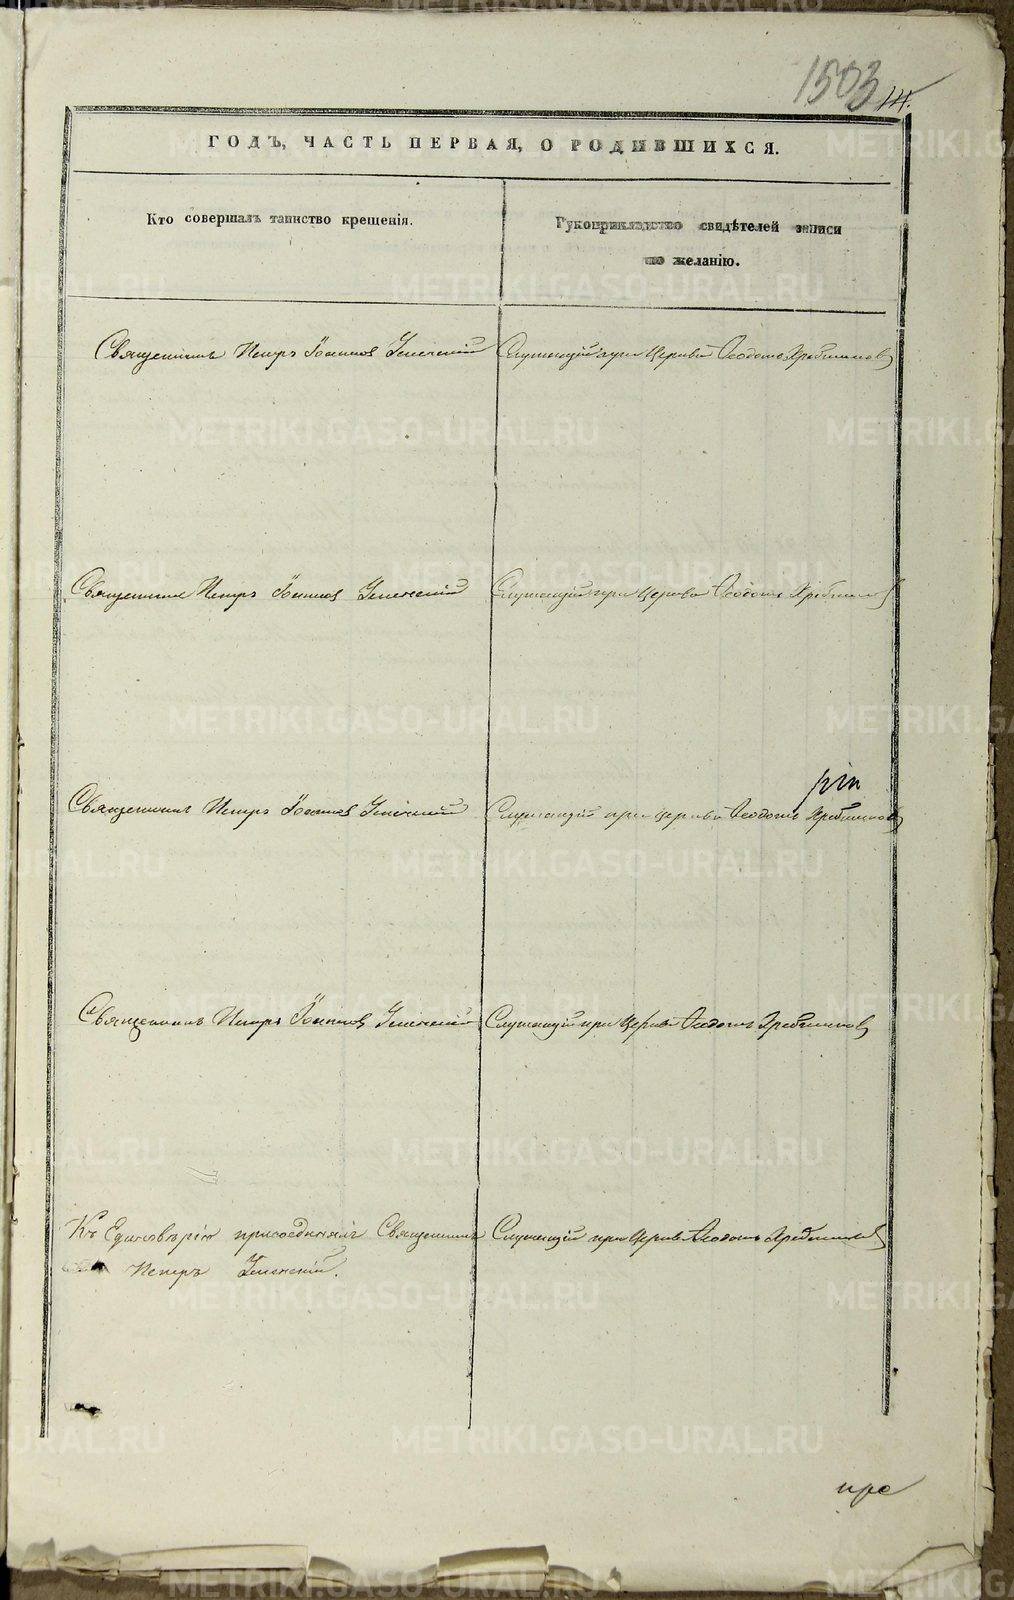 1503
14.
ГОДЪ, ЧАСТЬ ПЕРВАЯ, О РОДИВШИХСЯ.
Кто совершалъ таинство крещенія.
Рукоприкладство свидѣтелей записи
по желанію.
Священникъ Петръ Іоанновъ Успенскій
Служащій при Церкви Ѳеодотъ
Священникъ Петръ Іоанновъ Успенскій
Служащій при Церкви Ѳеодотъ
Священникъ Петръ Іоанновъ Успенскій
Служащій при Церкви Ѳеодотъ
Священникъ Петръ Іоанновъ Успенскій
Служащій при Церкви Ѳеодотъ
Къ Единовѣрію присоединялъ Священникъ
Петръ Успенскій.
Служащій при Церкви Ѳеодотъ
пре
METRIKI.GASO-URAL.RU